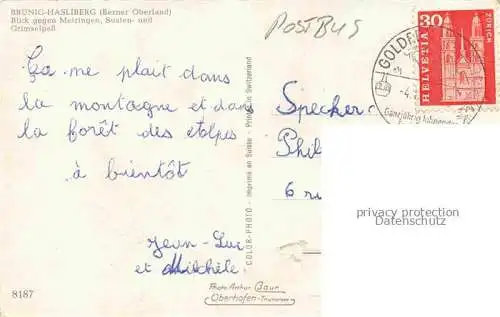 BRÜNIG-HASLIBERG (Berner Oberland)
Blick gegen Meiringen, Susten- und
Grimselpaß
POSTBUS
Ça me plait dans
la montagne et dans
la forêt des
à bientôt
Jean-Luc
et Michèle.
8187
COLOR-PHOTO - Imprimé en Suisse - Printed in Switzerland
Photo Arthur Baur
Oberhofen-Thunersee
Specker
Phil
6 r
HELVETIA
30
ZÜRICH
GOLD
privacy protection
Datenschutz